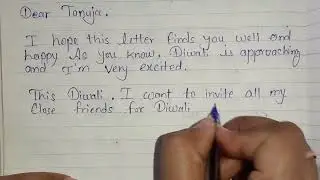 Dear Tanuja.
I hope this letter finds you well and
happy As you know. Diwali is approaching
and I'm very excited.
This Diwali. I want to invite all my
close friends for Diwali